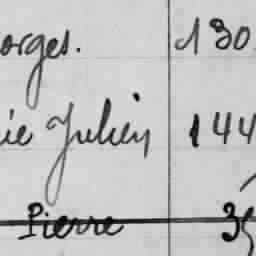 orges. 130
ie Julien 144
Pierre